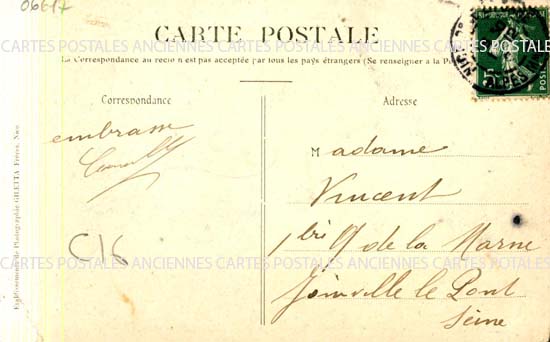 06617
CARTE POSTALE
La Correspondance au recto n'est pas acceptée par tous les pays étrangers (Se renseigner à la Po
CARTES POSTALES ANCIENNES CARTES POSTALES ANCIENNES CARTES POSTALES
Correspondance
Adresse
embrasse
Madame
Vincent
de la Marne
Joinville le Pont
Seine
C16
Etablissements de Photographie GILETTA Frères, Nice
CARTES POSTALES ANCIENNES CARTES POSTALES ANCIENNES CARTES POSTALES